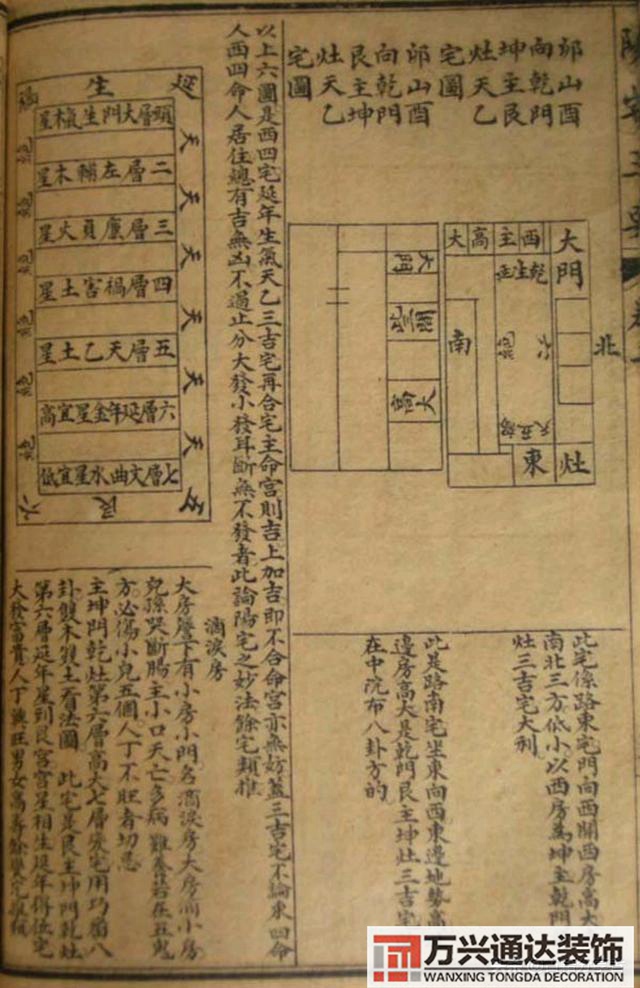 陽宅三要
卯山酉
向乾門
坤主艮
灶天乙
宅圖
卯山酉
向乾門
艮主坤
灶天乙
宅圖
大門
西主高大
乾生
北
南
東
灶
大門
高大
此宅係路東宅門向西開西房高大
南北三方低小以西房為坤主乾門
灶三吉宅大利
此是路南宅坐東向西東邊地勢高
邊房高大是乾門艮主坤灶三吉宅
在中院布八卦方的
以上六圖是西四宅延年生氣天乙三吉宅再合宅主命宮則吉上加吉即不合命宮亦無妨蓋三吉宅不論東四命
人西四命人居住總有吉無凶不過止分大發小發耳斷無不發者此論陽宅之妙法餘宅類推
延生
頭層大門生氣木星
二層左輔木星
三層廉貞火星
四層禍害土星
五層天乙土星
六層延年金星宜高
七層文曲水星宜低
天
天
天
天
天
天
五艮六
滴淚房
大房簷下有小房小門名滴淚房大房滴小房
兒孫哭斷腸主小口夭亡多病難養若在五鬼
方必傷小兒五個人丁不旺者切忌
主坤門乾灶第六層高大七層變宅用巧番八
卦雙木雙土看法圖 此宅是艮主坤門乾灶
第六層延年星到艮宮宮星相生延年得位宅
大發富貴人丁興旺男女高壽餘變宅
万兴通达装饰
WANXING TONGDA DECORATION